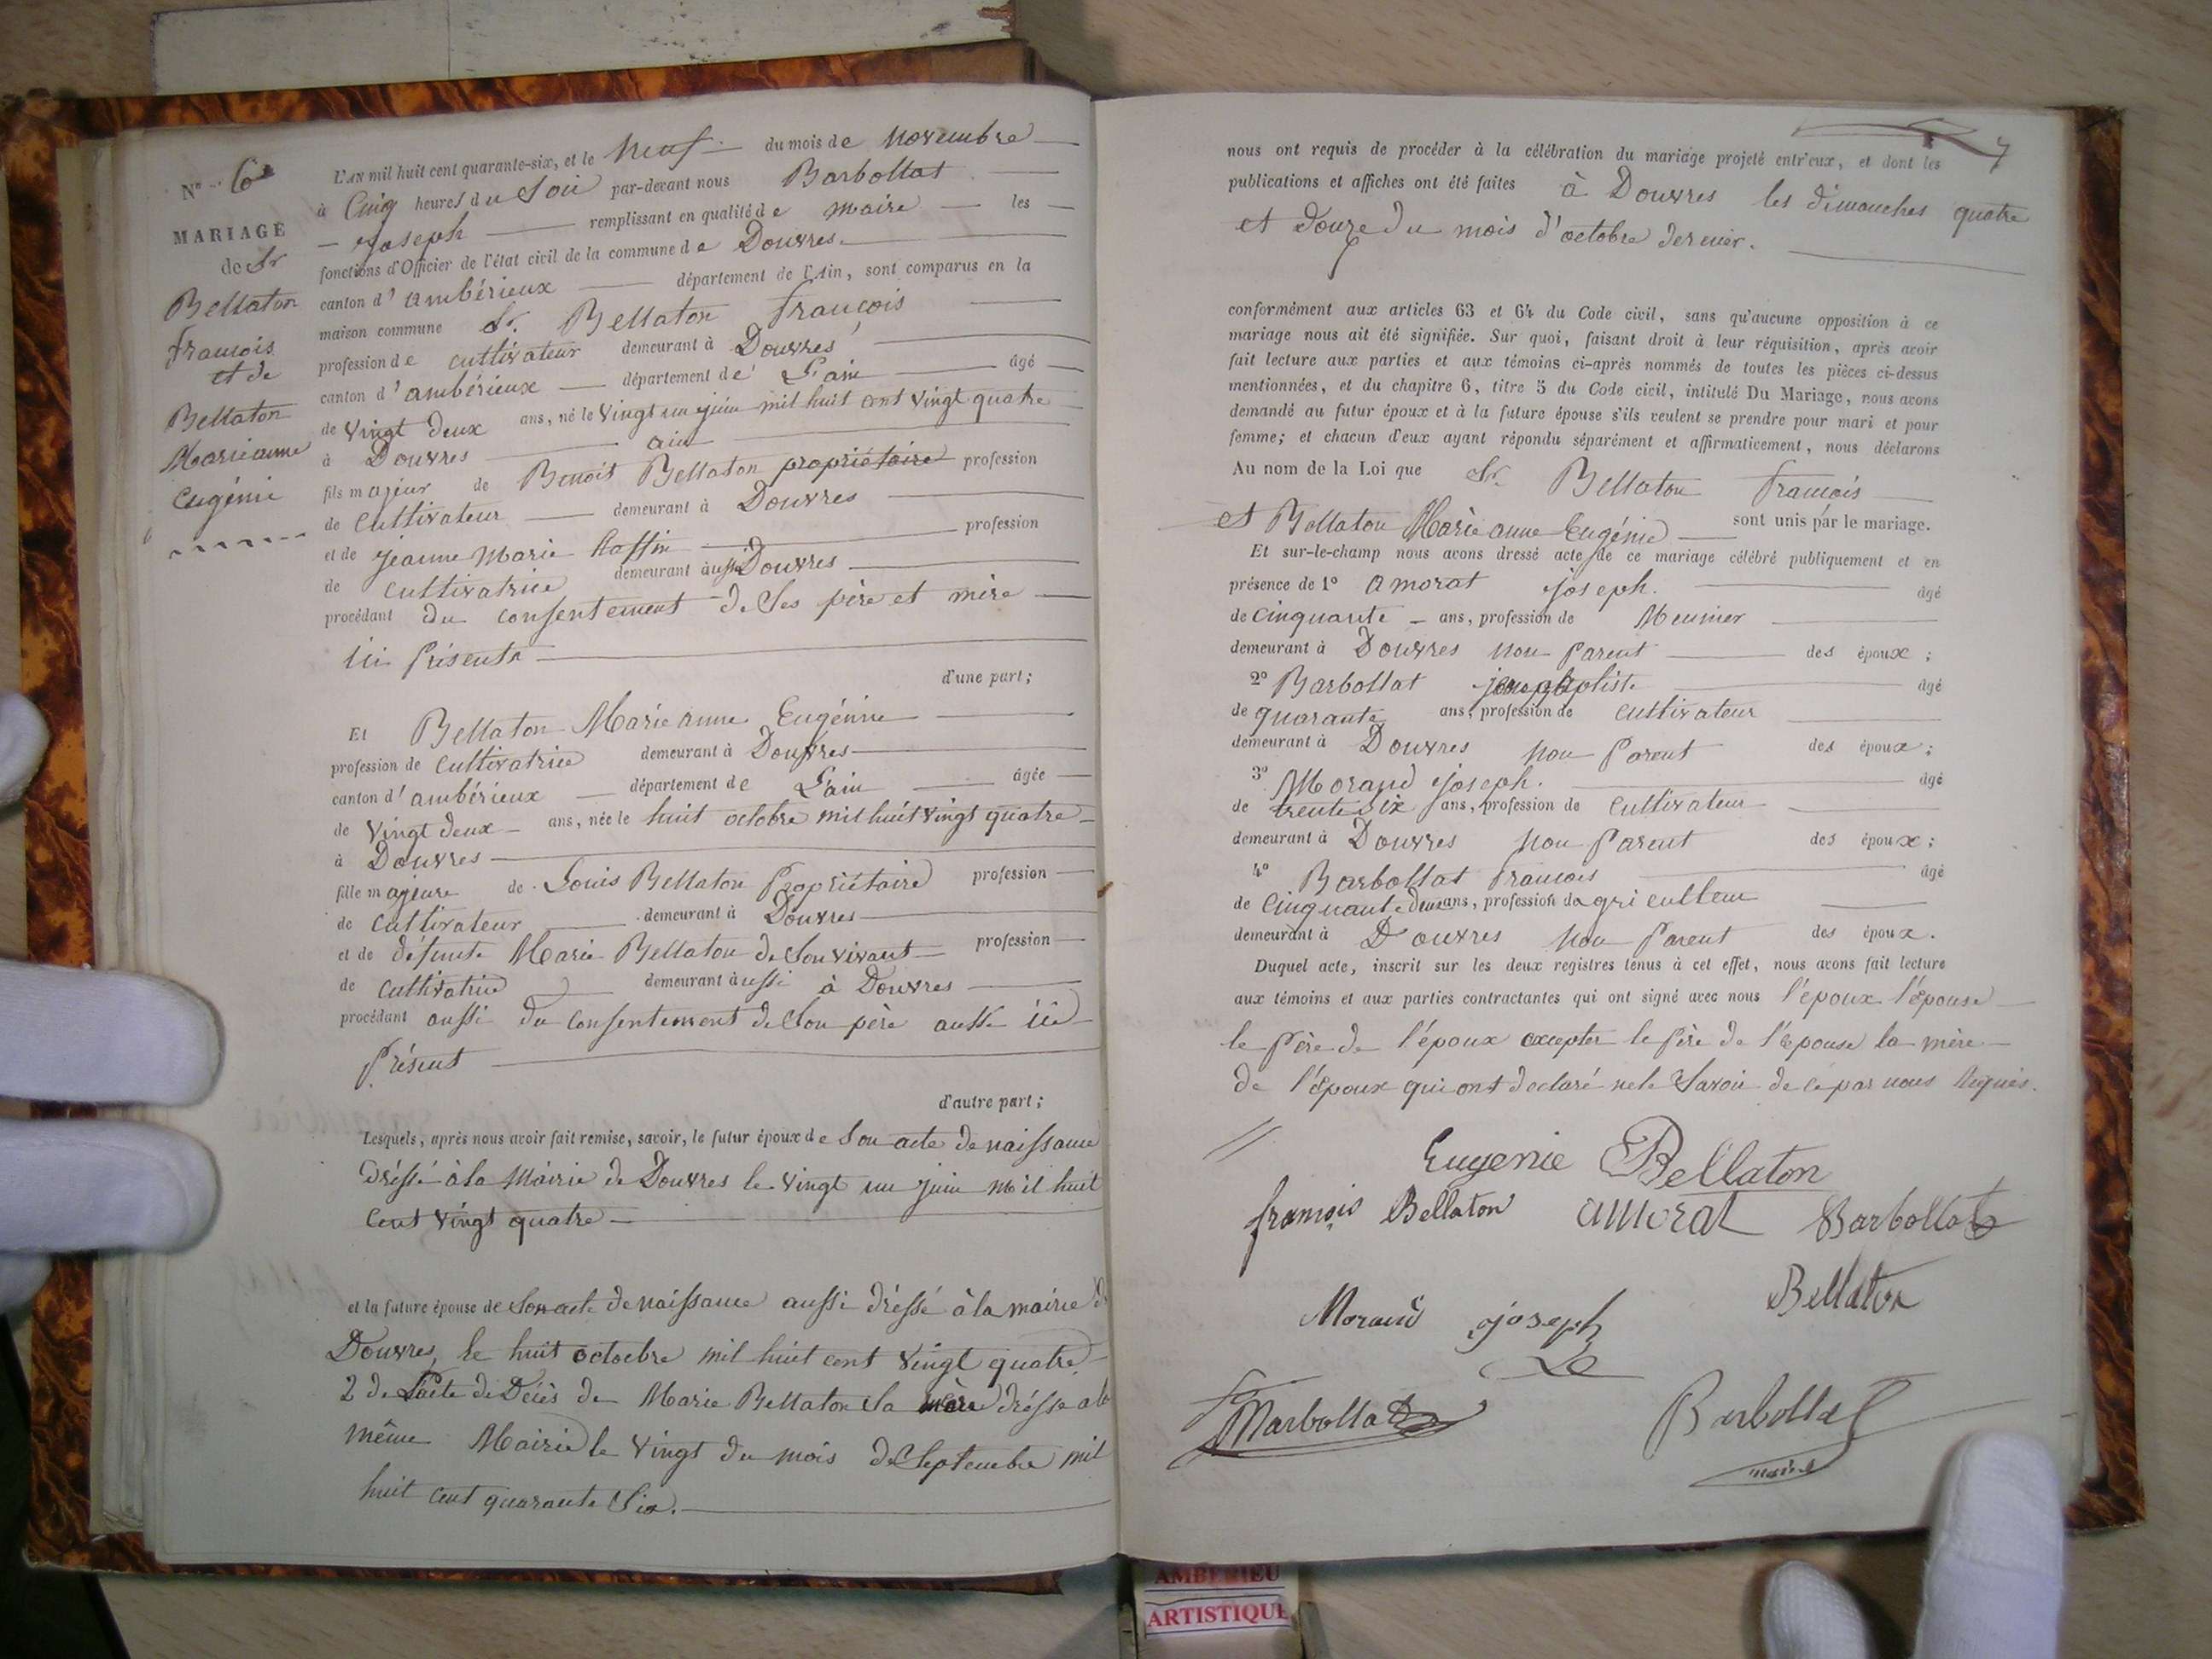 N° 6
MARIAGE
de Sr
Bellaton
francois
et de
Bellaton
Marie anne
Eugénie
L'AN mil huit cent quarante-six, et le Neuf du mois de Novembre
à Cinq heures du Soir par-devant nous Barbollat
joseph remplissant en qualité de maire les
fonctions d'Officier de l'état civil de la commune de Douvres.
canton d'ambérieux département de l'Ain, sont comparus en la
maison commune Sr. Bellaton françois
profession de cultivateur demeurant à Douvres
canton d'ambérieux département de L'ain âgé
de vingt deux ans, né le vingt un juin mil huit cent vingt quatre
à Douvres ain
fils majeur de Benoit Bellaton propriétaire profession
de Cultivateur demeurant à Douvres
et de jeanne Marie profession
de cultivatrice demeurant aussi Douvres
procédant du consentement de Ses père et mère
ici présents
d'une part;
Et Bellaton Marie anne Eugénie
profession de Cultivatrice demeurant à Douvres
canton d'ambérieux département de L'ain âgée
de vingt deux ans, née le huit octobre mil huit vingt quatre
à Douvres
fille majeure de Louis Bellaton Propriétaire profession
de Cultivateur demeurant à Douvres
et de défunte Marie Bellaton de Son vivant profession
de Cultivatrice demeurant aussi à Douvres
procédant aussi du consentement de Son père aussi ici
Présent
d'autre part;
Lesquels, après nous avoir fait remise, savoir, le futur époux de Son acte de naissance
dréssé à la Mairie de Douvres le vingt un juin mil huit
Cent vingt quatre
et la future épouse de Son acte de naissance aussi dréssé à la mairie de
Douvres, le huit octoebre mil huit cent vingt quatre
2 de L'acte de Décès de Marie Bellaton Sa mère dréssé a la
même Mairie le vingt du mois de Septembre mil
huit cent quarante Six.
7
nous ont requis de procéder à la célébration du mariage projeté entr'eux, et dont les
publications et affiches ont été faites à Douvres les dimanches quatre
et douze du mois d'octobre dernier.
conformément aux articles 63 et 64 du Code civil, sans qu'aucune opposition à ce
mariage nous ait été signifiée. Sur quoi, faisant droit à leur réquisition, après avoir
fait lecture aux parties et aux témoins ci-après nommés de toutes les pièces ci-dessus
mentionnées, et du chapitre 6, titre 5 du Code civil, intitulé Du Mariage, nous avons
demandé au futur époux et à la future épouse s'ils veulent se prendre pour mari et pour
femme; et chacun d'eux ayant répondu séparément et affirmativement, nous déclarons
Au nom de la Loi que Sr. Bellaton francois
et Bellaton Marie anne Eugénie sont unis par le mariage.
Et sur-le-champ nous avons dressé acte de ce mariage célébré publiquement et en
présence de 1° amorat joseph. âgé
de Cinquante ans, profession de Meunier
demeurant à Douvres non Parent des époux;
2° Barbollat âgé
de quarante ans, profession de cultivateur
demeurant à Douvres non Parent des époux;
3° Morand joseph. âgé
de trente Six ans, profession de Cultivateur
demeurant à Douvres non Parent des époux;
4° Barbollat francois âgé
de Cinquante deux ans, profession d'agriculteur
demeurant à Douvres non Parent des époux.
Duquel acte, inscrit sur les deux registres tenus à cet effet, nous avons fait lecture
aux témoins et aux parties contractantes qui ont signé avec nous l'époux l'épouse
le Père de l'époux excepter le père de l'épouse la mère
de l'époux qui ont déclaré ne le Savoir de ce par nous requis.
Eugenie Bellaton
françois Bellaton amorat Barbollat
Bellaton
Moraud joseph
Le
Barbollat Barbollat
maire
AMBERIEU
ARTISTIQUE